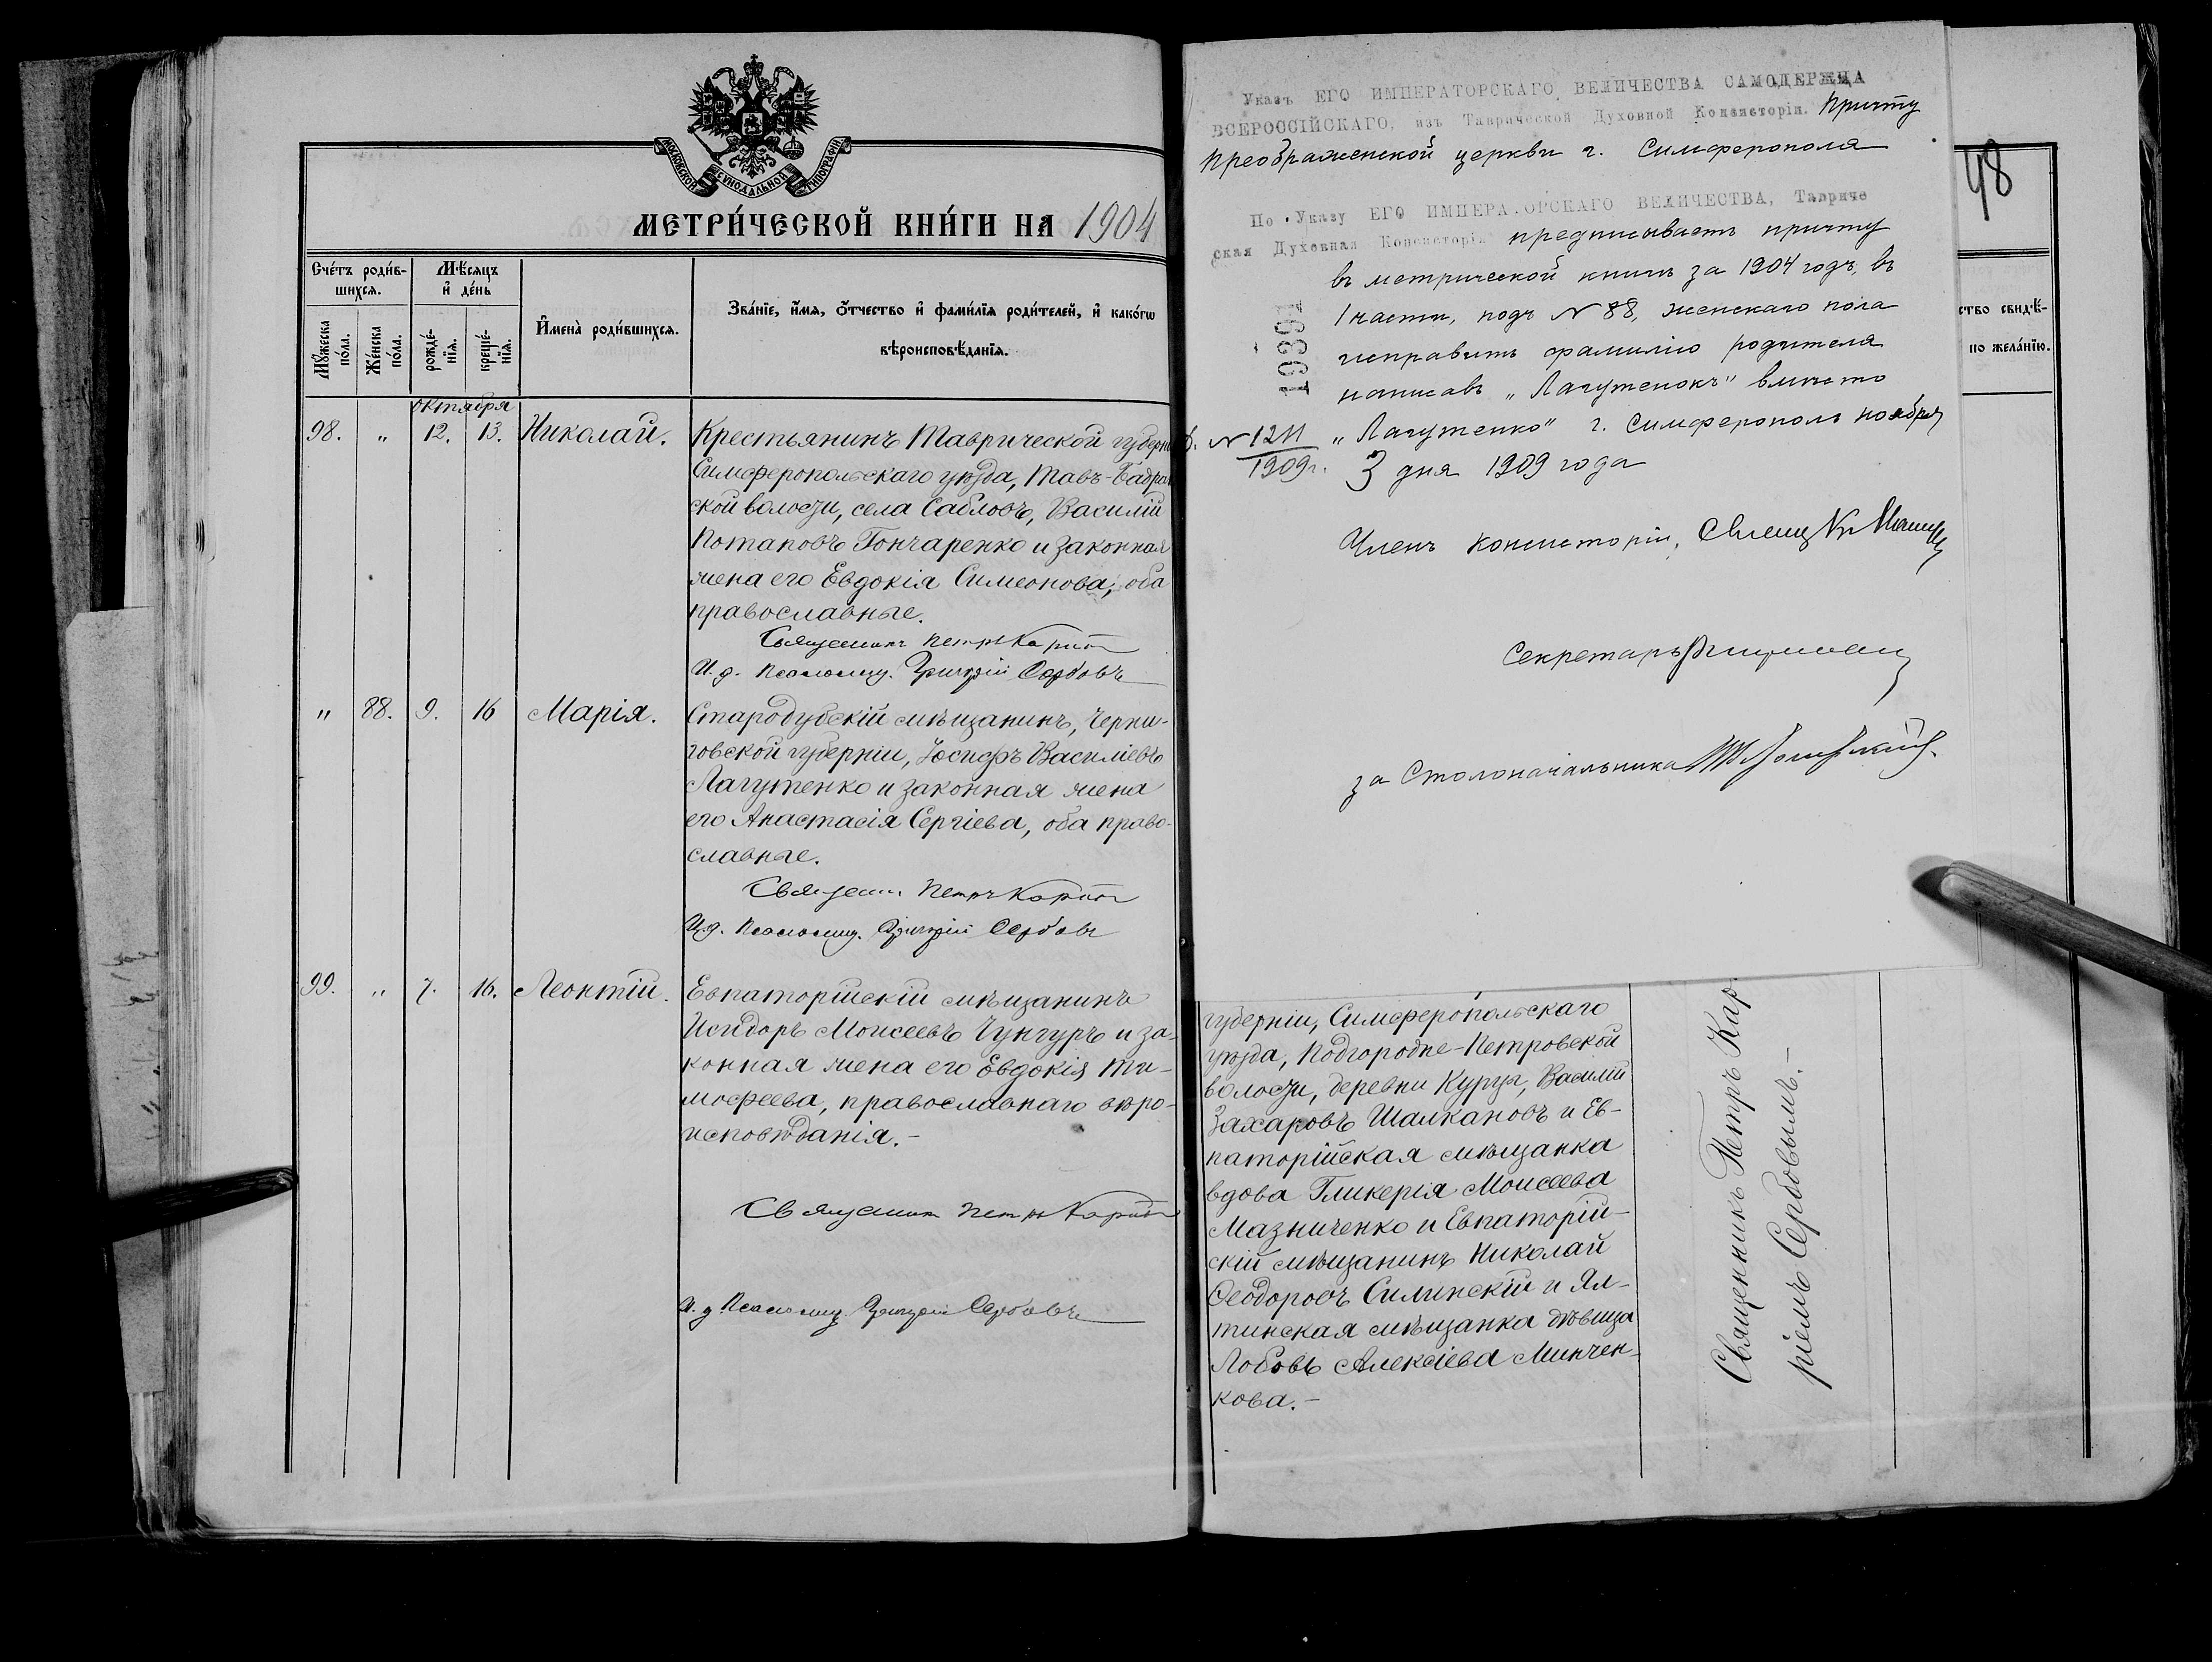 МОСКОВСКОЙ СУНОДАЛЬНОЙ ТИПОГРАФІИ
МЕТРИ́ЧЕСКОЙ КНИ́ГИ НА 1904
Сче́тъ роди́в-
шихся.
Мѣ́сяцъ
и҆ де́нь
И҆мена̀ роди́вшихся.
Зва́нїе, и҆́мя, ѻ҆́тчество и҆ фами́лїя роди́телей, и҆ како́гѡ
вѣроисповѣ́данїя.
Мꙋ́жеска
по́ла.
Же́нска
по́ла.
рожде́-
нїя.
креще́-
нїя.
октября
98. " 12. 13. Николай.
Крестьянинъ Таврической губерн
Симферопольскаго уѣзда, Тавъ-Бадра
ской волости, села Сабловъ, Василій
Потаповъ Гончаренко и законная
жена его Евдокія Симеонова; оба
православные.
Священникъ Петръ Карпов
И. д. Псаломщ. Григорій Сербовъ
" 88. 9. 16 Марія.
Стародубскій мѣщанинъ, Черни-
говской губерніи, Іосифъ Василіевъ
Лагутенко и законная жена
его Анастасія Сергіева, оба право-
славные.
Священ. Петръ
И. д. Псаломщ. Григорій Сербовъ
99. " 7. 16. Леонтій.
Евпаторійскій мѣщанинъ
Исидоръ Моисеевъ Чунгуръ и за-
конная жена его Евдокія Ти-
мофеева, православнаго вѣро-
исповѣданія.-
Священник Петръ
И. д. Псаломщ. Григорій Сербовъ
Указъ ЕГО ИМПЕРАТОРСКАГО ВЕЛИЧЕСТВА САМОДЕРЖЦА
ВСЕРОССІЙСКАГО, изъ Таврической Духовной Консисторіи. Причту
Преображенской церкви г. Симферополя
По Указу ЕГО ИМПЕРАТОРСКАГО ВЕЛИЧЕСТВА, Тавриче
ская Духовная Консисторія предписываетъ причту
въ метрической книгѣ за 1904 годъ, въ
1 части, подъ № 88, женскаго пола
исправить фамилію родителя
написавъ „Лагутенокъ" вмѣсто
„Лагутенко" г. Симферополь ноября
3 дня 1909 года
19391
№ 1211
1909 г.
Членъ консисторіи, Священ
Секретарь
за Столоначальника
48
ство свидѣ́-
по жела́нїю.
губерніи, Симферопольскаго
уѣзда, Подгородне-Петровской
волости, деревни Курцы, Василій
Захаровъ Шалкановъ и Ев-
паторійская мѣщанка
вдова Гликерія Моисеева
Мазниченко и Евпаторій-
скій мѣщанинъ Николай
Ѳеодоровъ Силинскій и Ял-
тинская мѣщанка дѣвица
Любовь Алексіева Минчен-
кова.-
Священникъ Петръ Кар
ріемъ Сербовымъ.-